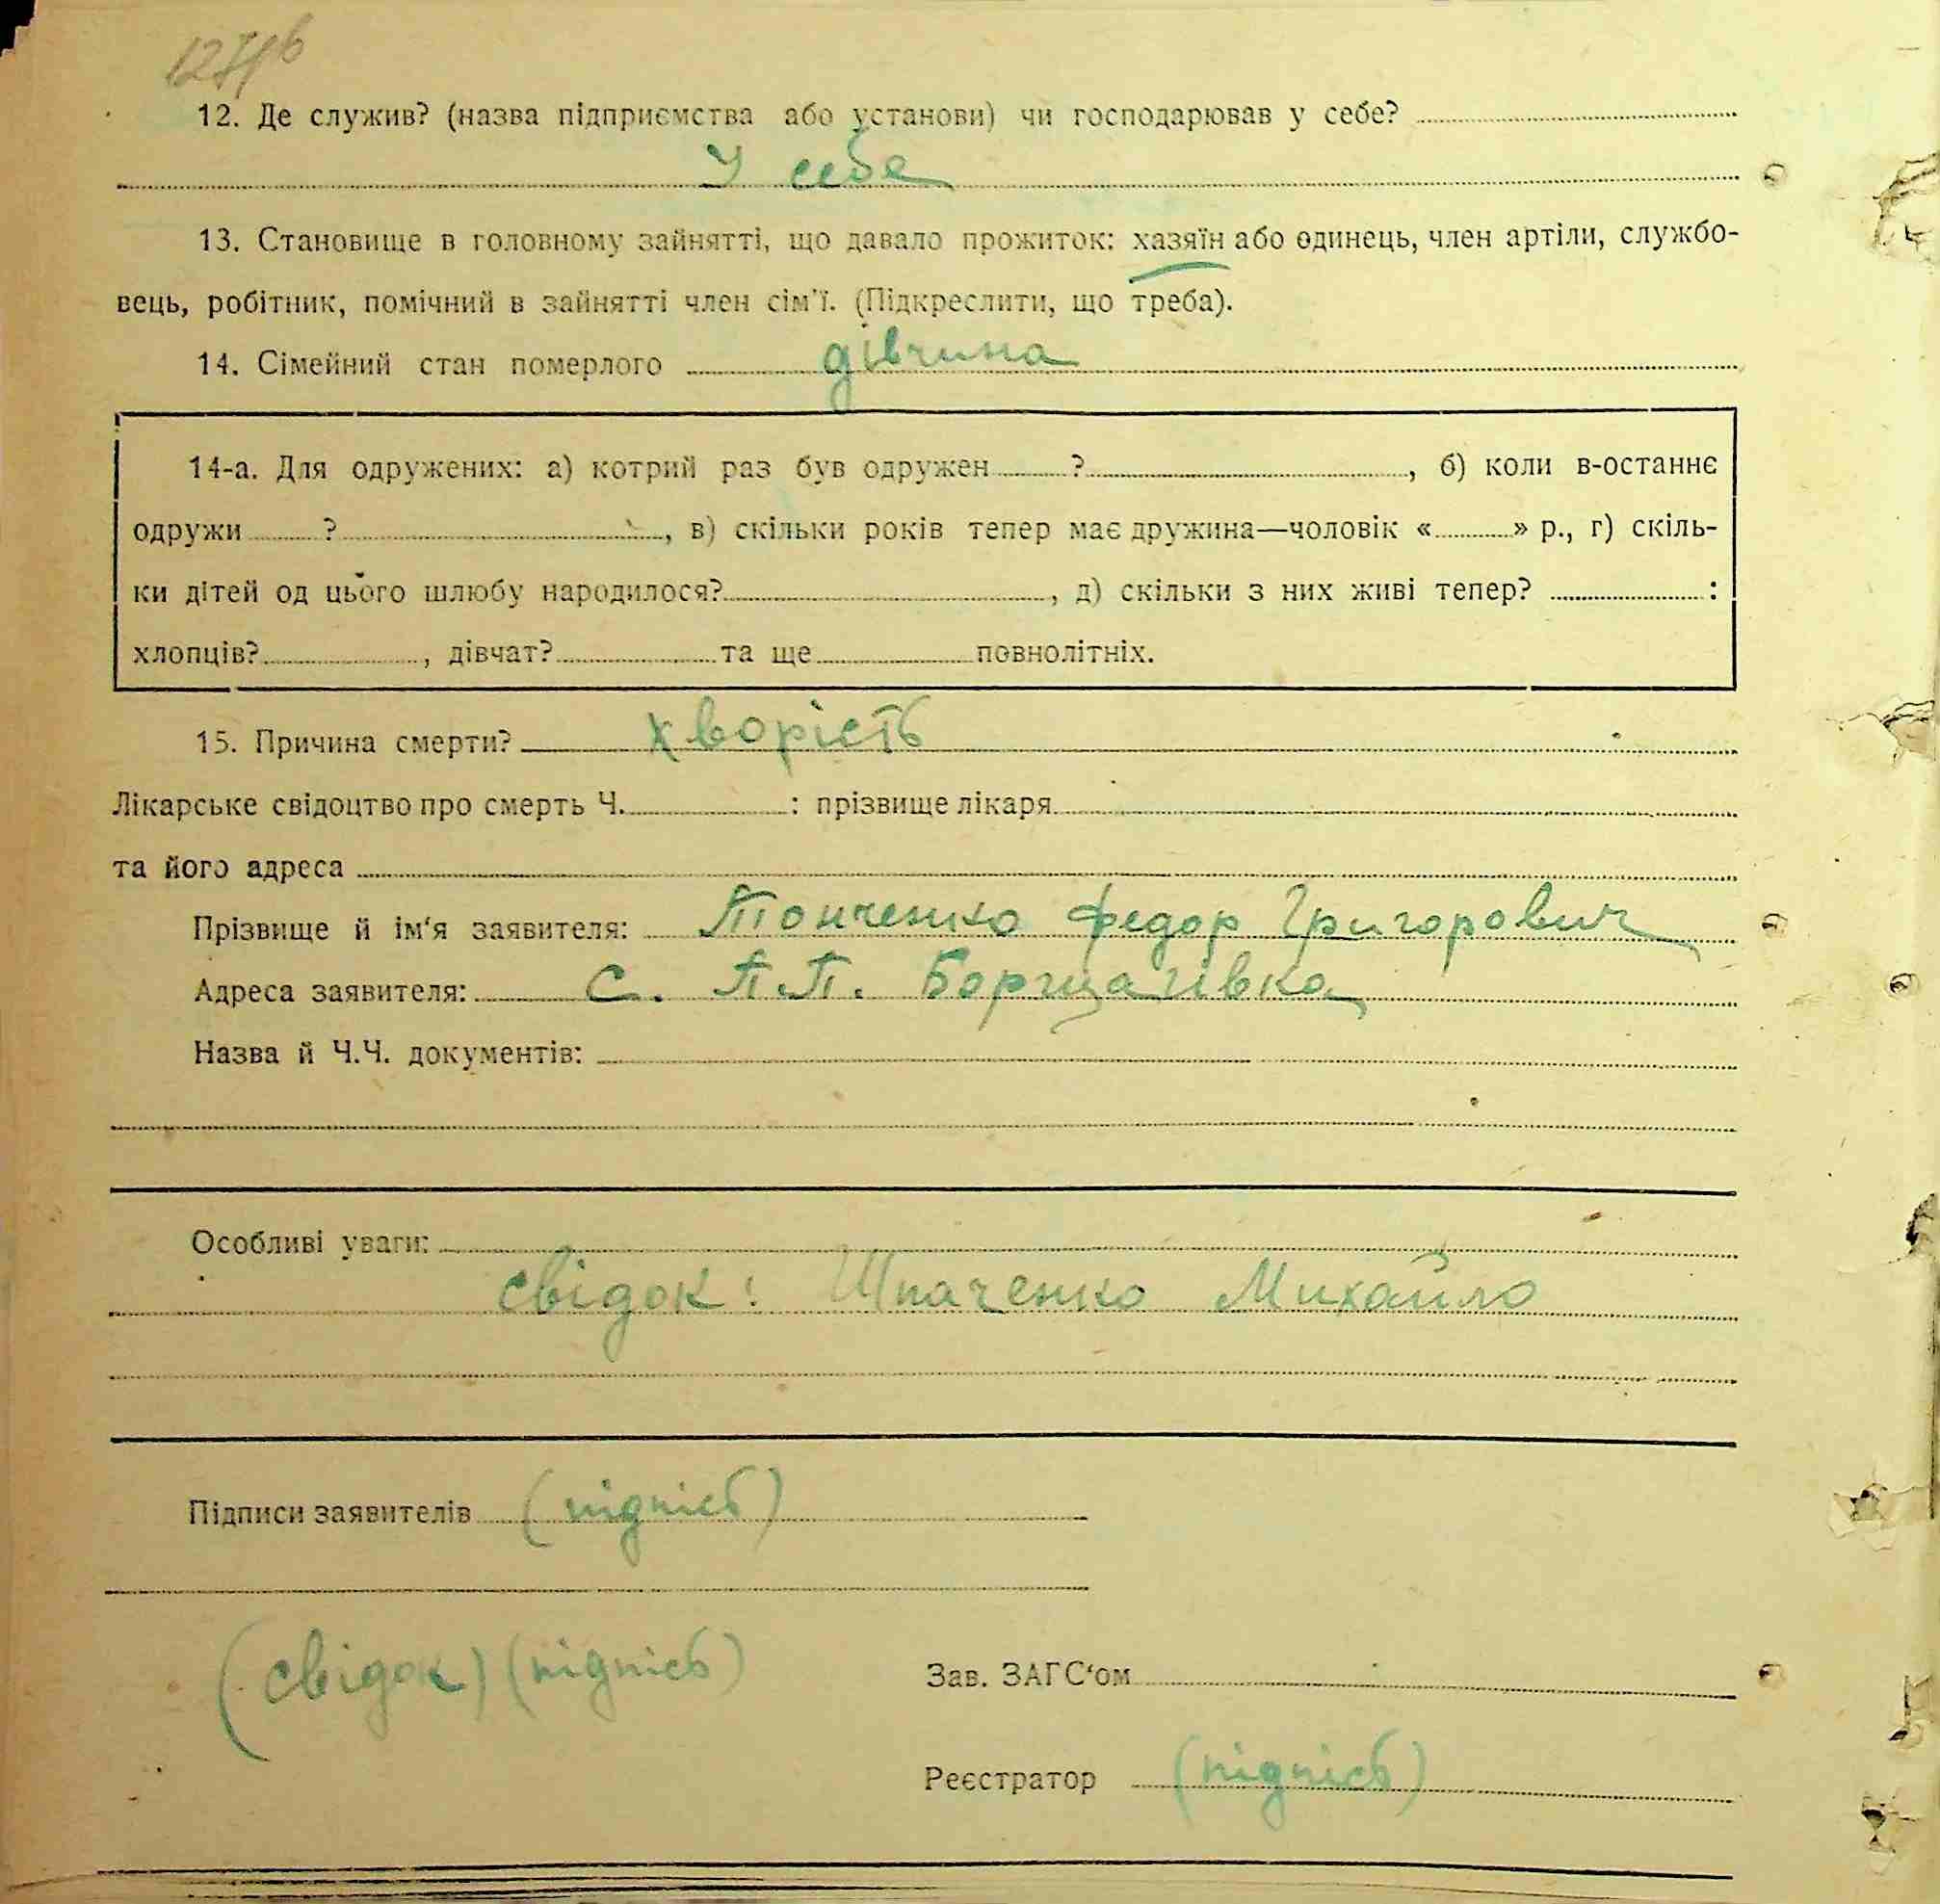 12. Де служив? (назва підприємства або установи) чи господарював у себе?
У себе
13. Становище в головному зайнятті, що давало прожиток: хазяїн або одинець, член артіли, службо-
вець, робітник, помічний в зайнятті член сім'ї. (Підкреслити, що треба).
14. Сімейний стан померлого дівчина
14-а. Для одружених: а) котрий раз був одружен ? , б) коли в-останнє
одружи ? , в) скільки років тепер має дружина—чоловік « » р., г) скіль-
ки дітей од цього шлюбу народилося? , д) скільки з них живі тепер? :
хлопців? , дівчат? та ще повнолітніх.
15. Причина смерти? хворість
Лікарське свідоцтво про смерть Ч. : прізвище лікаря
та його адреса
Прізвище й ім'я заявителя: Тонченко Федор Григорович
Адреса заявителя: С. П.П. Борщагівка
Назва й Ч.Ч. документів:
Особливі уваги:
свідок: Шпаченко Михайло
Підписи заявителів (підпісь)
(свідок) (підпісь)
Зав. ЗАГС'ом
Реєстратор (підпісь)